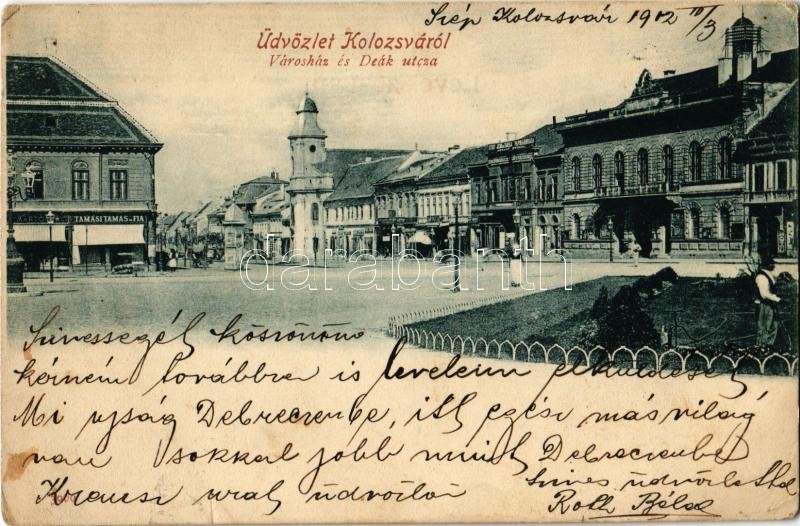 Szép Kolozsvár 1902 III/3
Üdvözlet Kolozsváról
Városház és Deák utcza
TAMÁSI TAMÁS és FIA
darabanth
Szivességét köszönöm
kérném továbbra is leveleim elküldését
Mi ujság Debreczenbe, itt egész más világ
van sokkal jobb mint Debreczenbe
Krauszi urat üdvözlöm
Szives üdvözlettel
Roth Béla